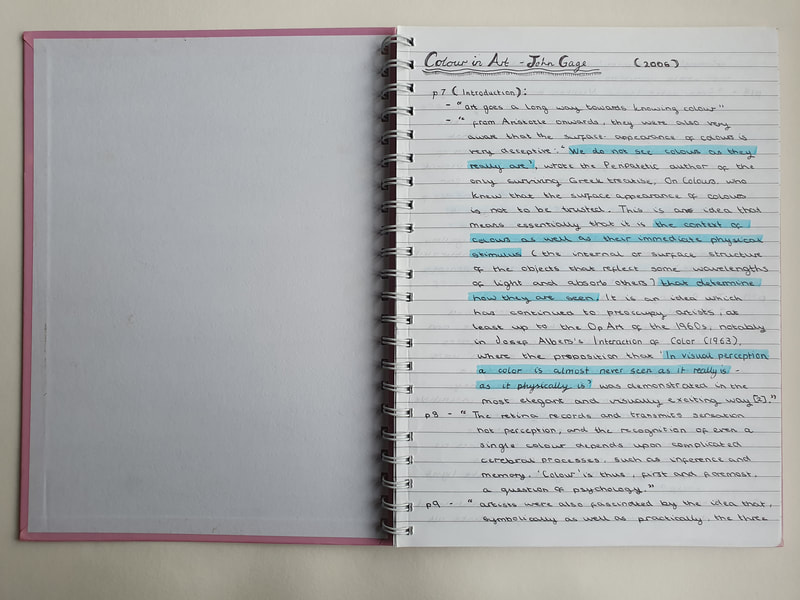 Colour in Art - John Gage (2006)
p7 (Introduction):
- "art goes a long way towards knowing colour"
- "from Aristotle onwards, they were also very
aware that the surface-appearance of colours is
very deceptive: 'We do not see colours as they
really are', wrote the Peripatetic author of the
only surviving Greek treatise, On Colours, who
knew that the surface appearance of colours
is not to be trusted. This is an idea that
means essentially that it is the context of
colours as well as their immediate physical
stimulus (the internal or surface structure
of the objects that reflect some wavelengths
of light and absorb others) that determine
how they are seen. It is an idea which
has continued to preoccupy artists, at
least up to the Op Art of the 1960s, notably
in Josep Albers's Interaction of Color (1963),
where the proposition that 'In visual perception
a color is almost never seen as it really is -
as it physically is' was demonstrated in the
most elegant and visually exciting way [2]."
p8 - "The retina records and transmits sensation
not perception, and the recognition of even a
single colour depends upon complicated
cerebral processes, such as inference and
memory. 'Colour' is thus, first and foremost,
a question of psychology."
p9 - "artists were also fascinated by the idea that,
symbolically as well as practically, the three